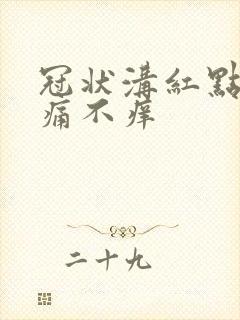 冠状溝紅點
痛不痒
二十九